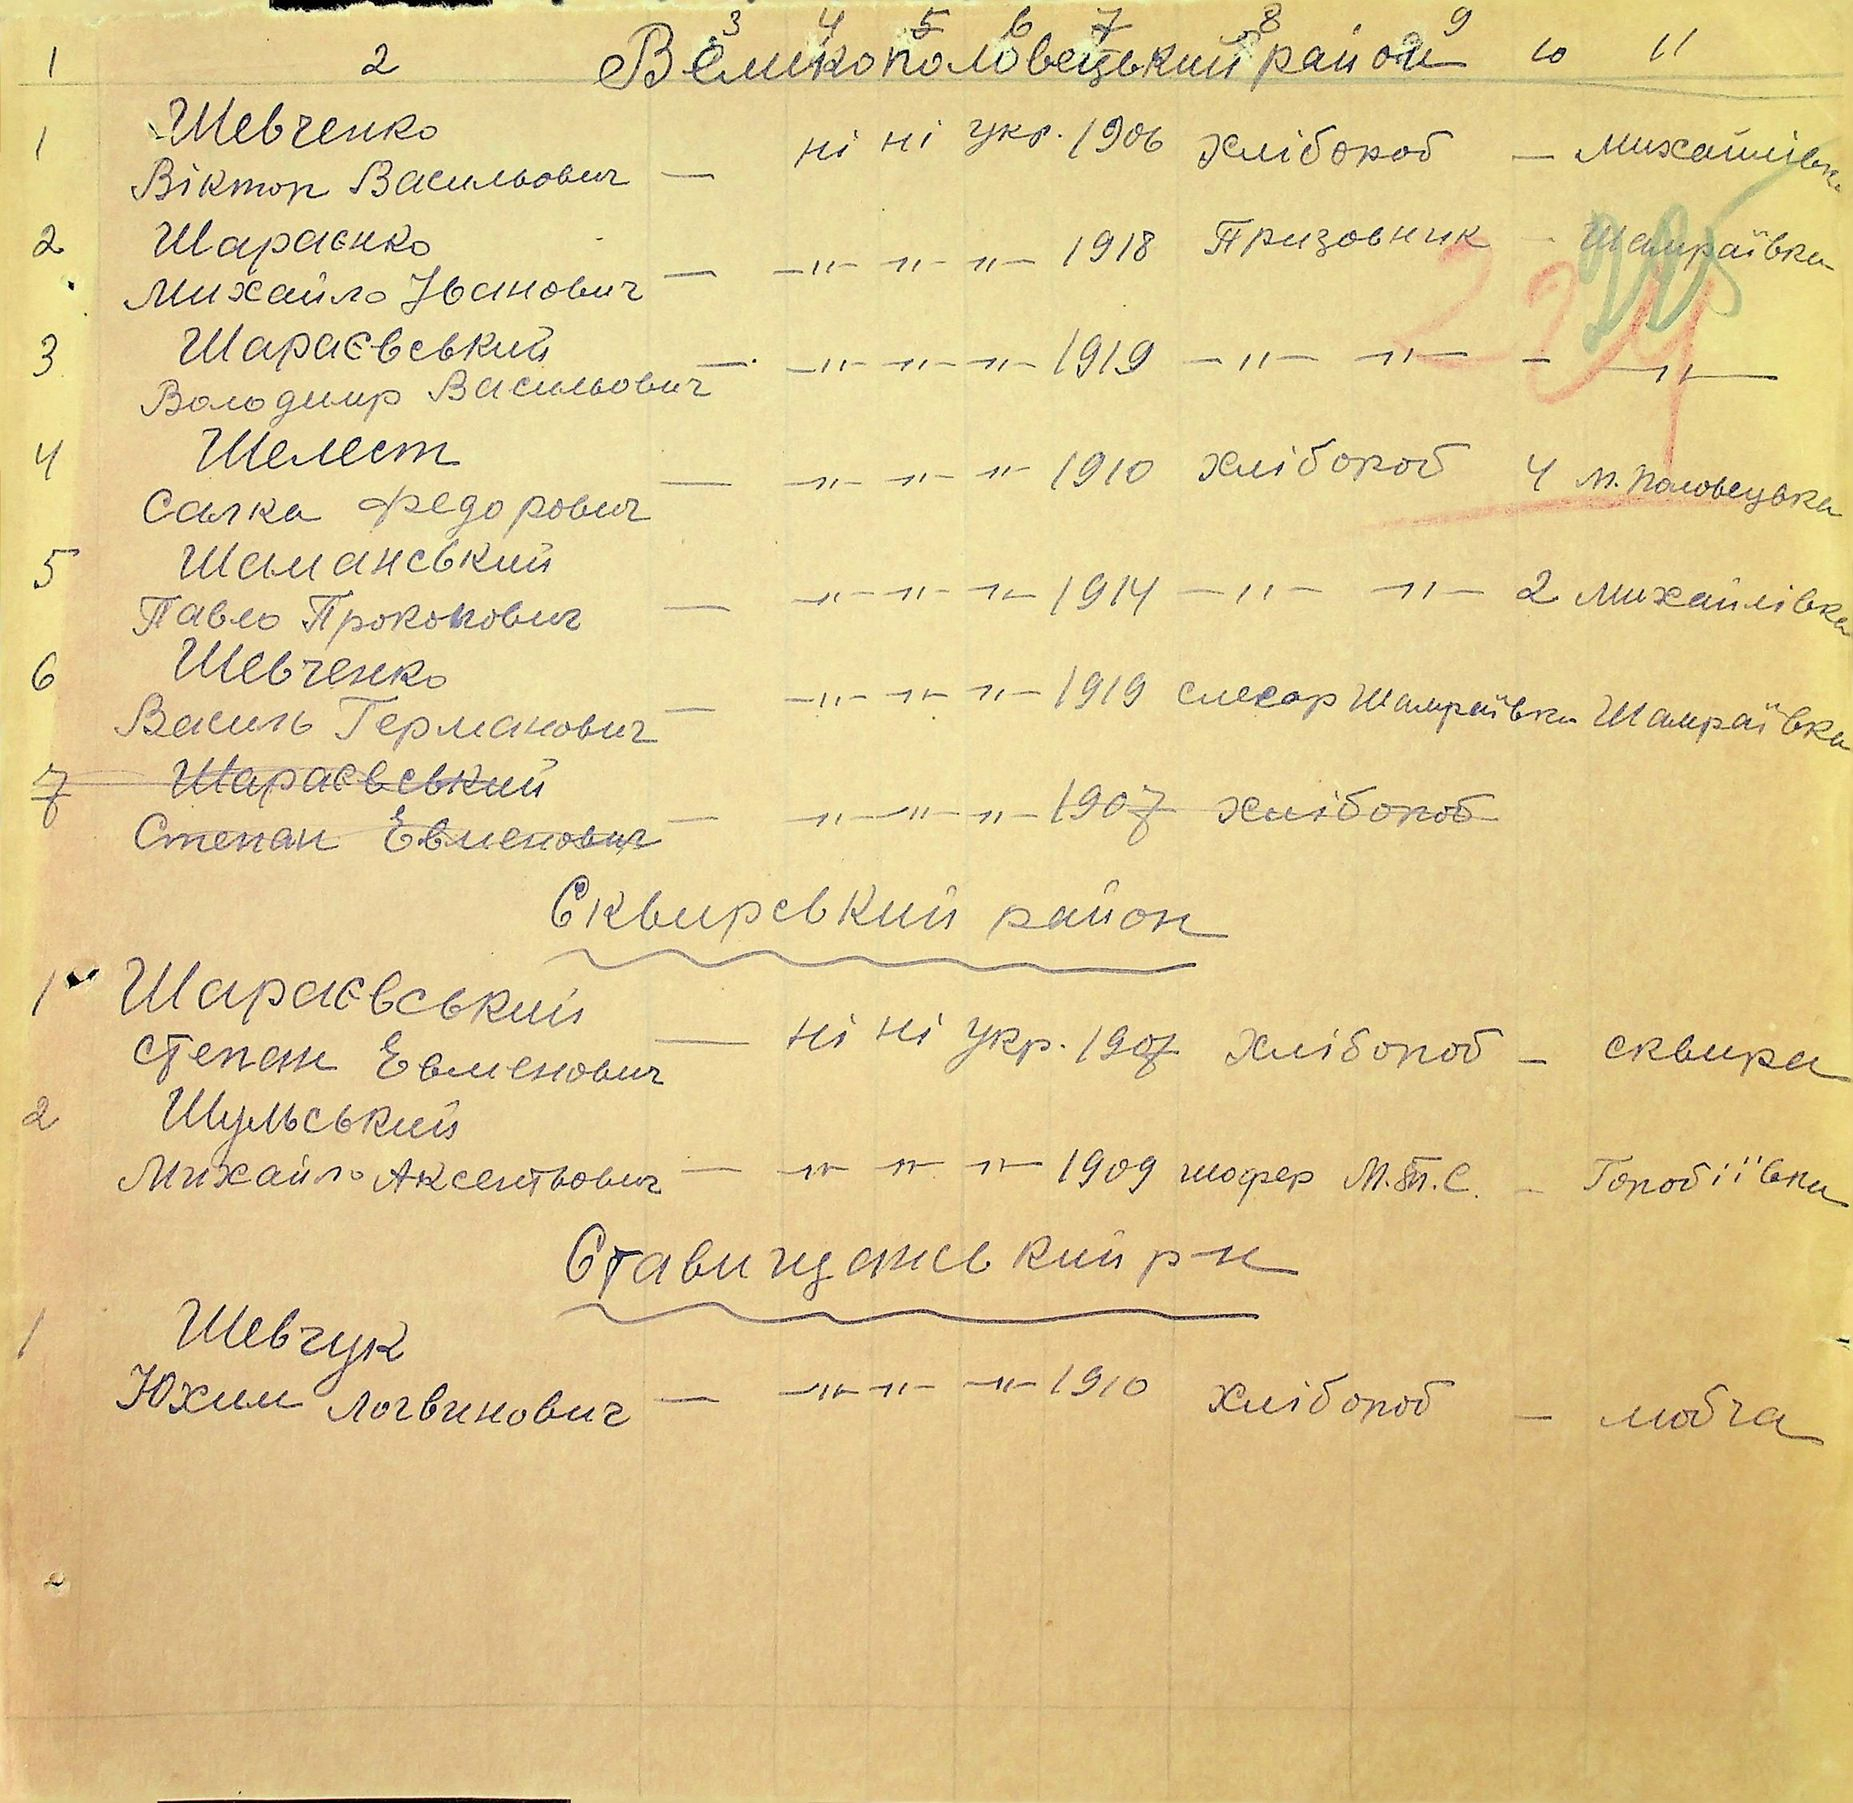 3 4 5 6 7 8 9
1 2 Великополовецький район 10 11
1 Шевченко
Віктор Васильович — ні ні укр. 1906 Хлібороб — Михайлівка
2 Шараєнко
Михайло Іванович — —"— —"— —"— 1918 Призовник - Шамраївка
224
3 Шараєвський
Володимир Васильович — —"— —"— —"— 1919 —"— —"— - —"—
4 Шелест
Савка Федорович — —"— —"— —"— 1910 Хлібороб 4 м. Половецька
5 Шаманський
Павло Прокопович — —"— —"— —"— 1914 —"— —"— 2 Михайлівка
6 Шевченко
Василь Германович — —"— —"— —"— 1919 слесар Шамраївка Шамраївка
7 Шараєвський
Степан Евменович — —"— —"— —"— 1907 Хлібороб
Сквирський район
1 Шараєвський
Степан Евменович — ні ні укр. 1907 Хлібороб — сквира
2 Шульський
Михайло Аксентьович — —"— —"— —"— 1909 шофер М.Т.С. - Горобіївка
Ставищанський р-н
1 Шевчук
Юхим Логвинович — —"— —"— —"— 1910 Хлібороб — любча